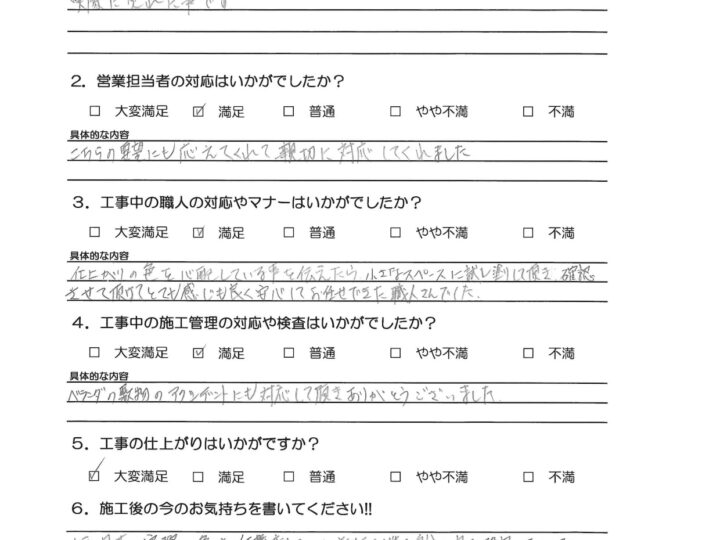 2．営業担当者の対応はいかがでしたか？
□ 大変満足 ☑ 満足 □ 普通 □ やや不満 □ 不満
具体的な内容
こちらの要望にも応えてくれて親切に対応してくれました
3．工事中の職人の対応やマナーはいかがでしたか？
□ 大変満足 ☑ 満足 □ 普通 □ やや不満 □ 不満
具体的な内容
仕上がりの色を心配している事を伝えたら、小さなスペースに試し塗りして頂き、確認
させて頂けてとても感じも良く安心してお任せできた職人さんでした。
4．工事中の施工管理の対応や検査はいかがでしたか？
□ 大変満足 ☑ 満足 □ 普通 □ やや不満 □ 不満
具体的な内容
ベランダの敷物のアクシデントにも対応して頂きありがとうございました。
5．工事の仕上がりはいかがですか？
☑ 大変満足 □ 満足 □ 普通 □ やや不満 □ 不満
6．施工後の今のお気持ちを書いてください!!